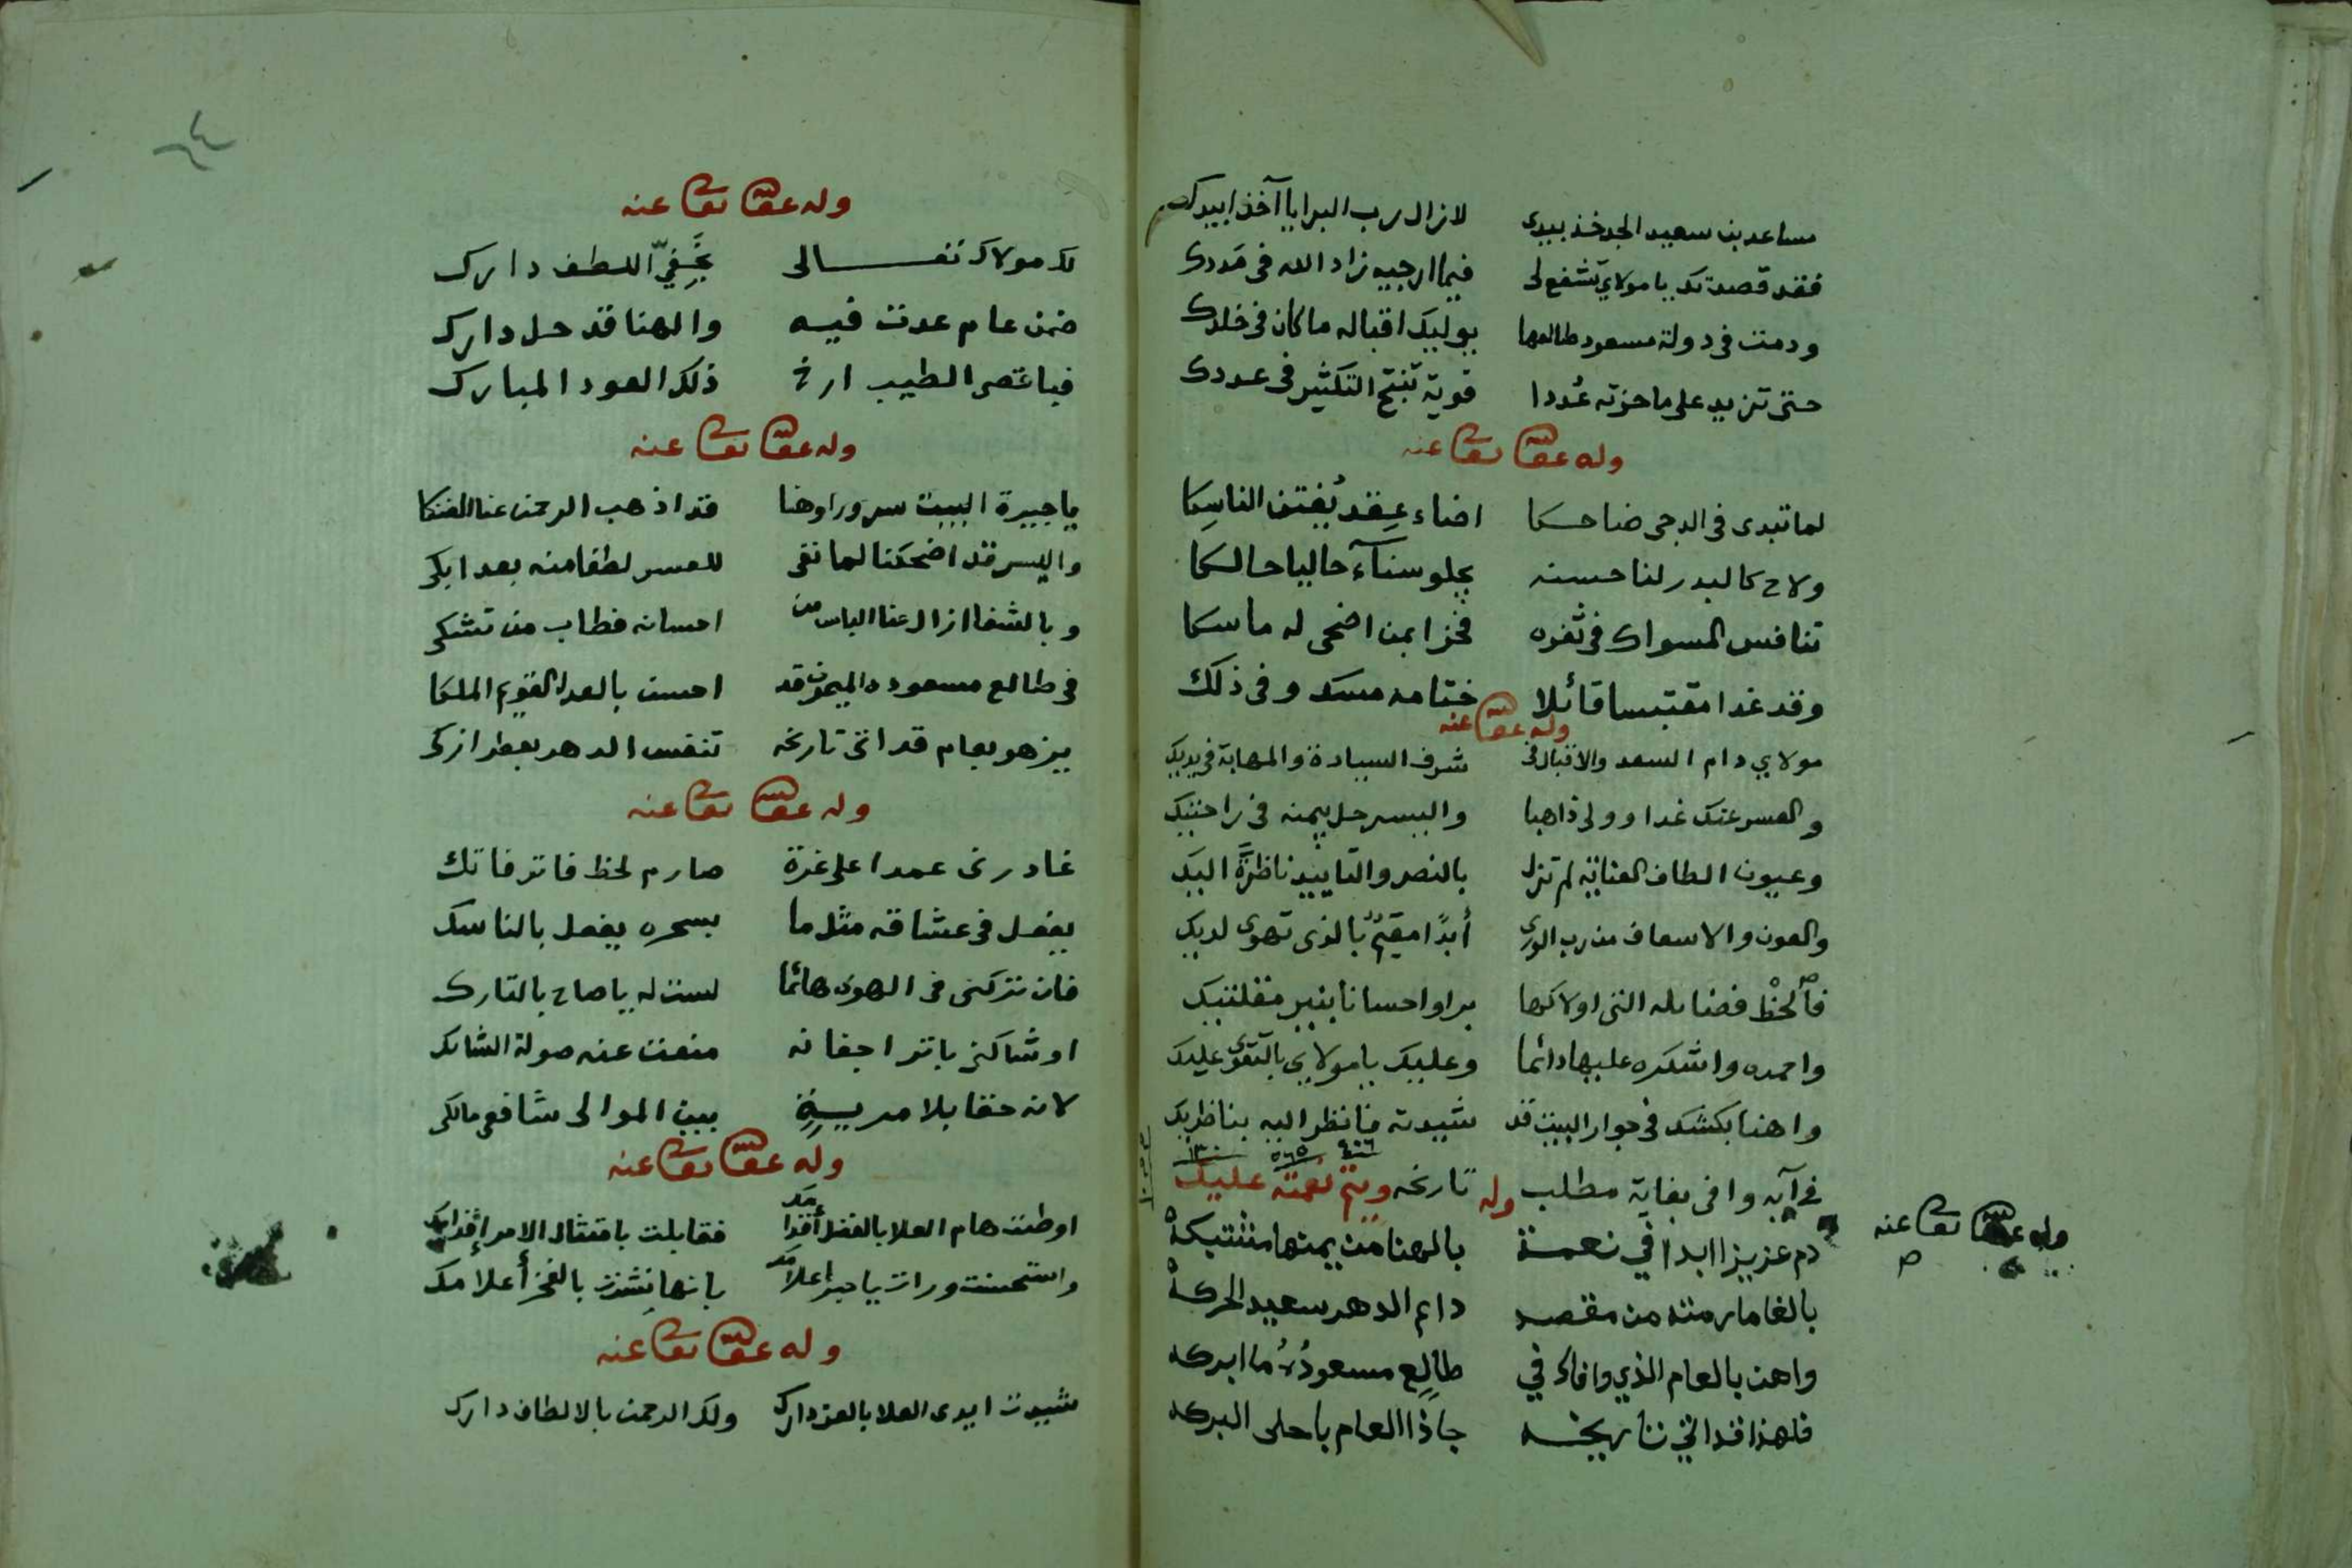 مساعد بن سعيد الجد خذ بيدى لازال رب البرايا آخذ ابيدك
فقد قصدتك يا مولاي تشفع لى فيما ارجيه زاد الله فى مددك
ودمت فى دولة مسعود طالعها يوليك اقباله ما كان فى خلدك
حتى تزيد على ما حزته عُددا قوية تنتج التكثير فى عددك
وله عفا الله تعا عنه
لما تبدى فى الدجى ضاحكا اضاء عِقد يُفتن الناسِكا
ولاح كالبدر لنا حسنه يجلو سناء حاليا حالكا
تنافس المسواك فى ثغره فخرا بمن اضحى له ماسكا
وقد غدا مقتبسا قائلا ختامه مسك وفى ذلك
وله عفا الله عنه
مولاي دام السعد والاقبال فى شرف السيادة والمهابة فى يديك
والعسر عنك غدا وولى ذاهبا واليسر حل بيمنه فى راحتيك
وعيون الطاف العناية لم تزل بالنصر والتاييد ناظرة اليك
والعون والاسعاف من رب الورى أبدًا مقيم بالذى تهوى لديك
فالحظ فضائله التى اولاكها برا واحسانا بنير مقلتيك
واحمده واشكره عليها دائما وعليك يا مولاي بالتقوى عليك
واهنا بكشك فى جوار البيت قد شيدته فانظر اليه بناظريك
فى آيه وافى بغاية مطلب تاريخه ويتم نعمته عليك
٤٥٦ ٥٦٥ ١٣٠
وله
وله عفا الله تعا عنه
دم عزيزا ابدا في نعمة بالهنا من يمنها مشتبكة
بالغا ما رمته من مقصد دايم الدهر سعيد الحركة
واهن بالعام الذي وافاك في طالِع مسعودُهُ ما ابركه
فلهذا قد اتى تاريخه جاذا العام باحلى البركه
وله عفا الله تعا عنه
لك مولاك تعالى بخفيّ اللطف دارك
ضمن عام عدت فيه والهنا قد حل دارك
فبا قصر الطيب ارخ ذلك العود المبارك
وله عفا الله تعا عنه
يا جيرة البيت سرورا وهنا قد اذهب الرحمن عنا الضنكا
واليسر قد اضحكنا لما نفى للعسر لطفا منه بعد ابكى
وبالشفا ازال عنا الباس من احسانه فطاب من تشكى
فى طالع مسعوده الميمون قد احسن بالعدل القويم الملكا
يزهو بعام قد اتى تاريخه تنفس الدهر بعطر ازكى
وله عفا الله تعا عنه
غادرنى عمدا على غرة صارم لحظ فاتر فاتك
يفعل فى عشاقه مثل ما بسحره يفعل بالناسك
فان تركنى فى الهوى هائما لست له يا صاح بالتارك
او شاكنى باتر اجفانه منعت عنه صولة الشائك
لانه حقا بلا مرية بين الموالى شافعى مالكى
وله عفا الله تعا عنه
اوطئت هام العلا بالفضل أقدامك فقابلت بامتثال الامر إقدامك
واستحسنت ورات يا حبر اعلامك بانها نشرت بالفخر أعلامك
وله عفا الله تعا عنه
شيدت ايدى العلا بالعز دارك ولك الرحمن بالالطاف دارك